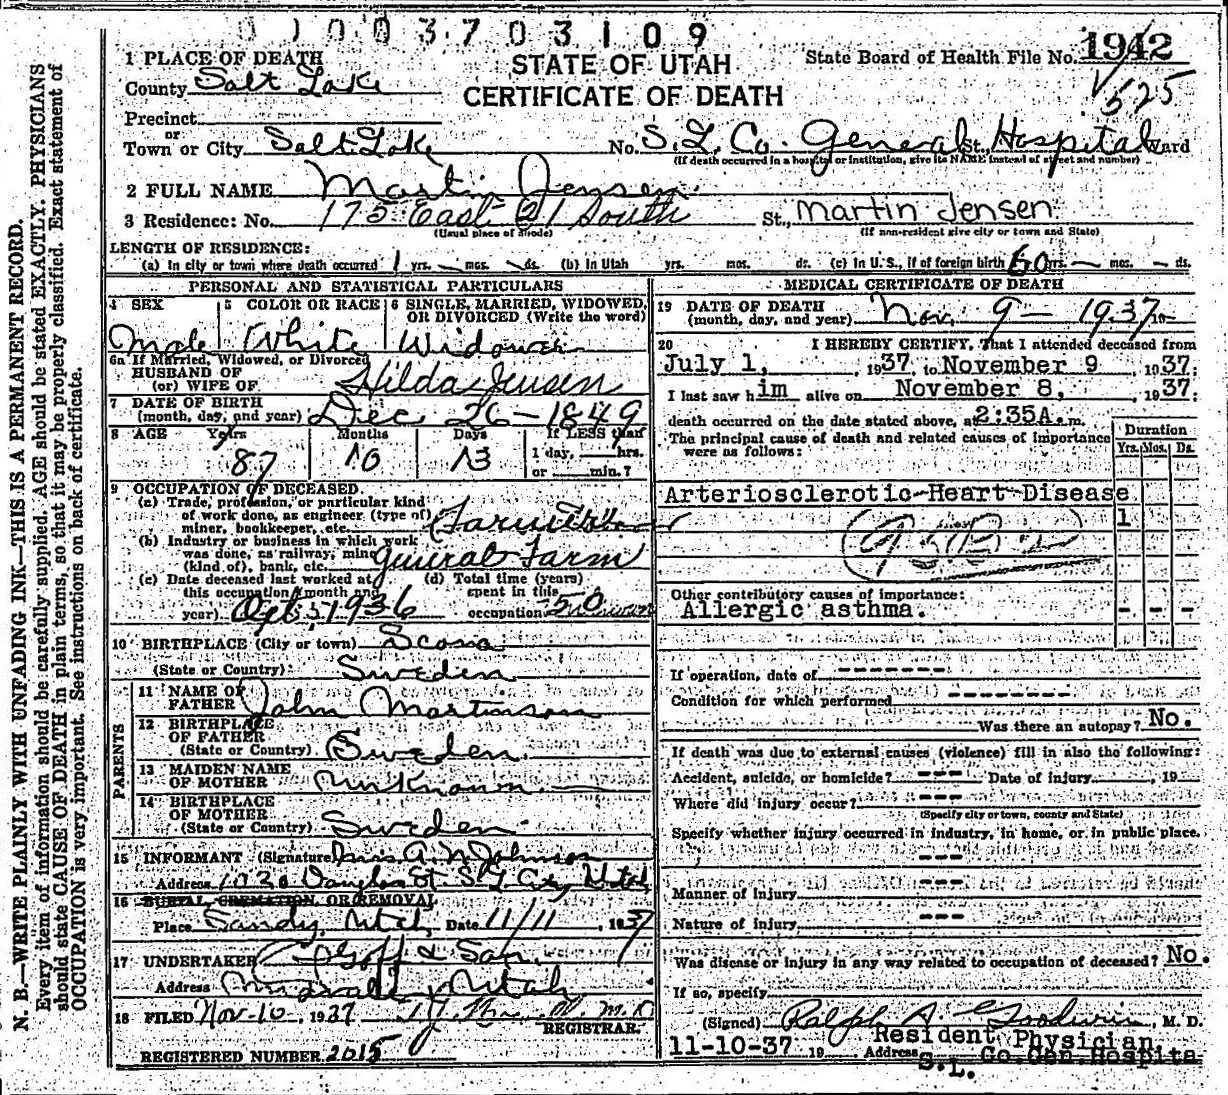 1003703109
1 PLACE OF DEATH
STATE OF UTAH
State Board of Health File No. 1942
525
County Salt Lake
CERTIFICATE OF DEATH
Precinct
or
Town or City Salt Lake No. S. L. Co. General St., Hospital Ward
(If death occurred in a hospital or institution, give its NAME instead of street and number)
2 FULL NAME Martin Jensen.
3 Residence: No. 175 East 21 South St., Martin Jensen
(Usual place of abode) (If non-resident give city or town and State)
LENGTH OF RESIDENCE:
(a) In city or town where death occurred 1 yrs. — mos. — ds. (b) In Utah yrs. mos. ds. (c) In U. S., if of foreign birth 60 yrs. — mos. — ds.
PERSONAL AND STATISTICAL PARTICULARS
4 SEX 5 COLOR OR RACE 6 SINGLE, MARRIED, WIDOWED, OR DIVORCED (Write the word)
Male White Widower
6a If Married, Widowed, or Divorced
HUSBAND OF
(or) WIFE OF Hilda Jensen
7 DATE OF BIRTH
(month, day, and year) Dec 26 - 1849
8 AGE Years Months Days If LESS than
87 10 13 1 day, hrs.
or min.?
9 OCCUPATION OF DECEASED
(a) Trade, profession, or particular kind
of work done, as engineer (type of)
miner, bookkeeper, etc.
(b) Industry or business in which work
was done, as railway, mine
(kind of), bank, etc. General Farm
(c) Date deceased last worked at (d) Total time (years)
this occupation (month and spent in this
year) 1936 occupation 50
10 BIRTHPLACE (City or town) Scona
(State or Country) Sweden
PARENTS
11 NAME OF
FATHER John Martinson
12 BIRTHPLACE
OF FATHER
(State or Country) Sweden.
13 MAIDEN NAME
OF MOTHER Unknown.
14 BIRTHPLACE
OF MOTHER
(State or Country) Sweden
15 INFORMANT (Signature) Mrs A. N. Johnson
Address 1030 Douglas St S. L. City, Utah
16 BURIAL, CREMATION, OR REMOVAL
Place Sandy, Utah Date 11/11, 1937
17 UNDERTAKER Goff & Son
Address Midvale, Utah
18 FILED Nov-10, 1937 M. D.
REGISTRAR.
REGISTERED NUMBER 2015
MEDICAL CERTIFICATE OF DEATH
19 DATE OF DEATH
(month, day, and year) Nov. 9 - 1937
20 I HEREBY CERTIFY, That I attended deceased from
July 1, 1937, to November 9 1937:
I last saw him alive on November 8, 1937:
death occurred on the date stated above, at 2:35A. m.
The principal cause of death and related causes of importance
were as follows:
Duration
Yrs. Mos. Ds.
Arteriosclerotic Heart Disease
1
Other contributory causes of importance:
Allergic asthma. - - -
If operation, date of -------
Condition for which performed --------
Was there an autopsy? No.
If death was due to external causes (violence) fill in also the following:
Accident, suicide, or homicide? --- Date of injury , 19
Where did injury occur? ---
(Specify city or town, county and State)
Specify whether injury occurred in industry, in home, or in public place.
---
Manner of injury ---
Nature of injury ---
Was disease or injury in any way related to occupation of deceased? No.
If so, specify
(Signed) Ralph A. Goodwin, M. D.
Resident Physician,
11-10-37 19 Address S.L. Co.Gen.Hospita
N. B.—WRITE PLAINLY WITH UNFADING INK—THIS IS A PERMANENT RECORD.
Every item of information should be carefully supplied. AGE should be stated EXACTLY. PHYSICIANS
should state CAUSE OF DEATH in plain terms, so that it may be properly classified. Exact statement of
OCCUPATION is very important. See instructions on back of certificate.